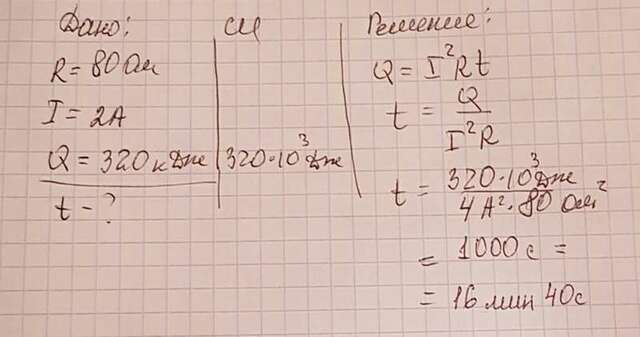 Дано:
R = 80 Ом
I = 2А
Q = 320 кДж
t - ?
СИ
320·10³ Дж
Решение:
Q = I²Rt
t = Q / I²R
t = 320·10³ Дж / 4 А²·80 Ом²
= 1000 с =
= 16 мин 40с